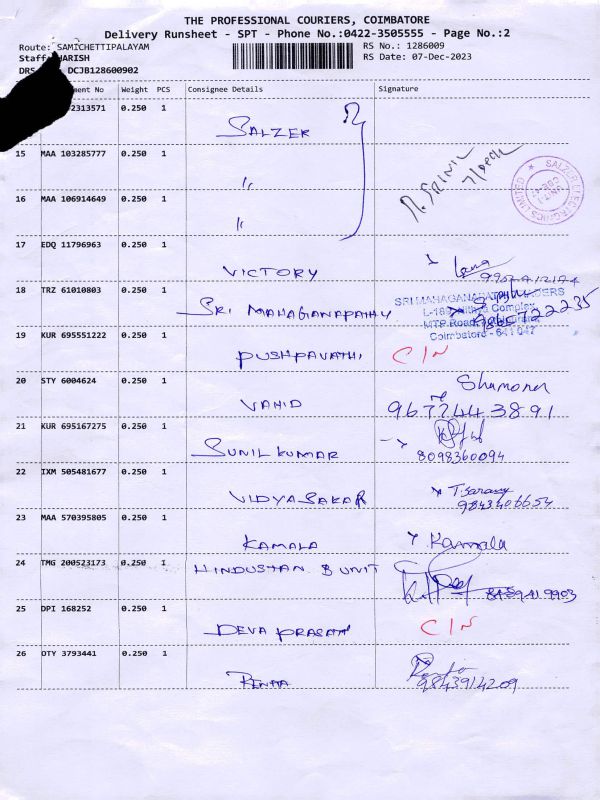 THE PROFESSIONAL COURIERS, COIMBATORE
Delivery Runsheet - SPT - Phone No.:0422-3505555 - Page No.:2
Route: SAMICHETTIPALAYAM
RS No.: 1286009
Staff HARISH
RS Date: 07-Dec-2023
DRS DCJB128600902
ment No Weight PCS Consignee Details Signature
2313571 0.250 1
SALZER
15 MAA 103285777 0.250 1
〃
16 MAA 106914649 0.250 1
〃
17 EDQ 11796963 0.250 1
VICTORY
18 TRZ 61010803 0.250 1
SRI MAHAGANAPATHY
SRI MAHAGANAPATHY TRADERS
MTP Road
Coimbatore - 641 047
19 KUR 695551222 0.250 1
PUSHPAVATHI C/N
20 STY 6004624 0.250 1
VAHID 9677443891
21 KUR 695167275 0.250 1
SUNIL KUMAR 8098360094
22 IXM 505481677 0.250 1
VIDYA SAKAR 9843406654
23 MAA 570395805 0.250 1
KAMALA Kamala
24 TMG 200523173 0.250 1
HINDUSTAN B UNIT
25 DPI 168252 0.250 1
DEVA PRASATH C/N
26 OTY 3793441 0.250 1
9843914209